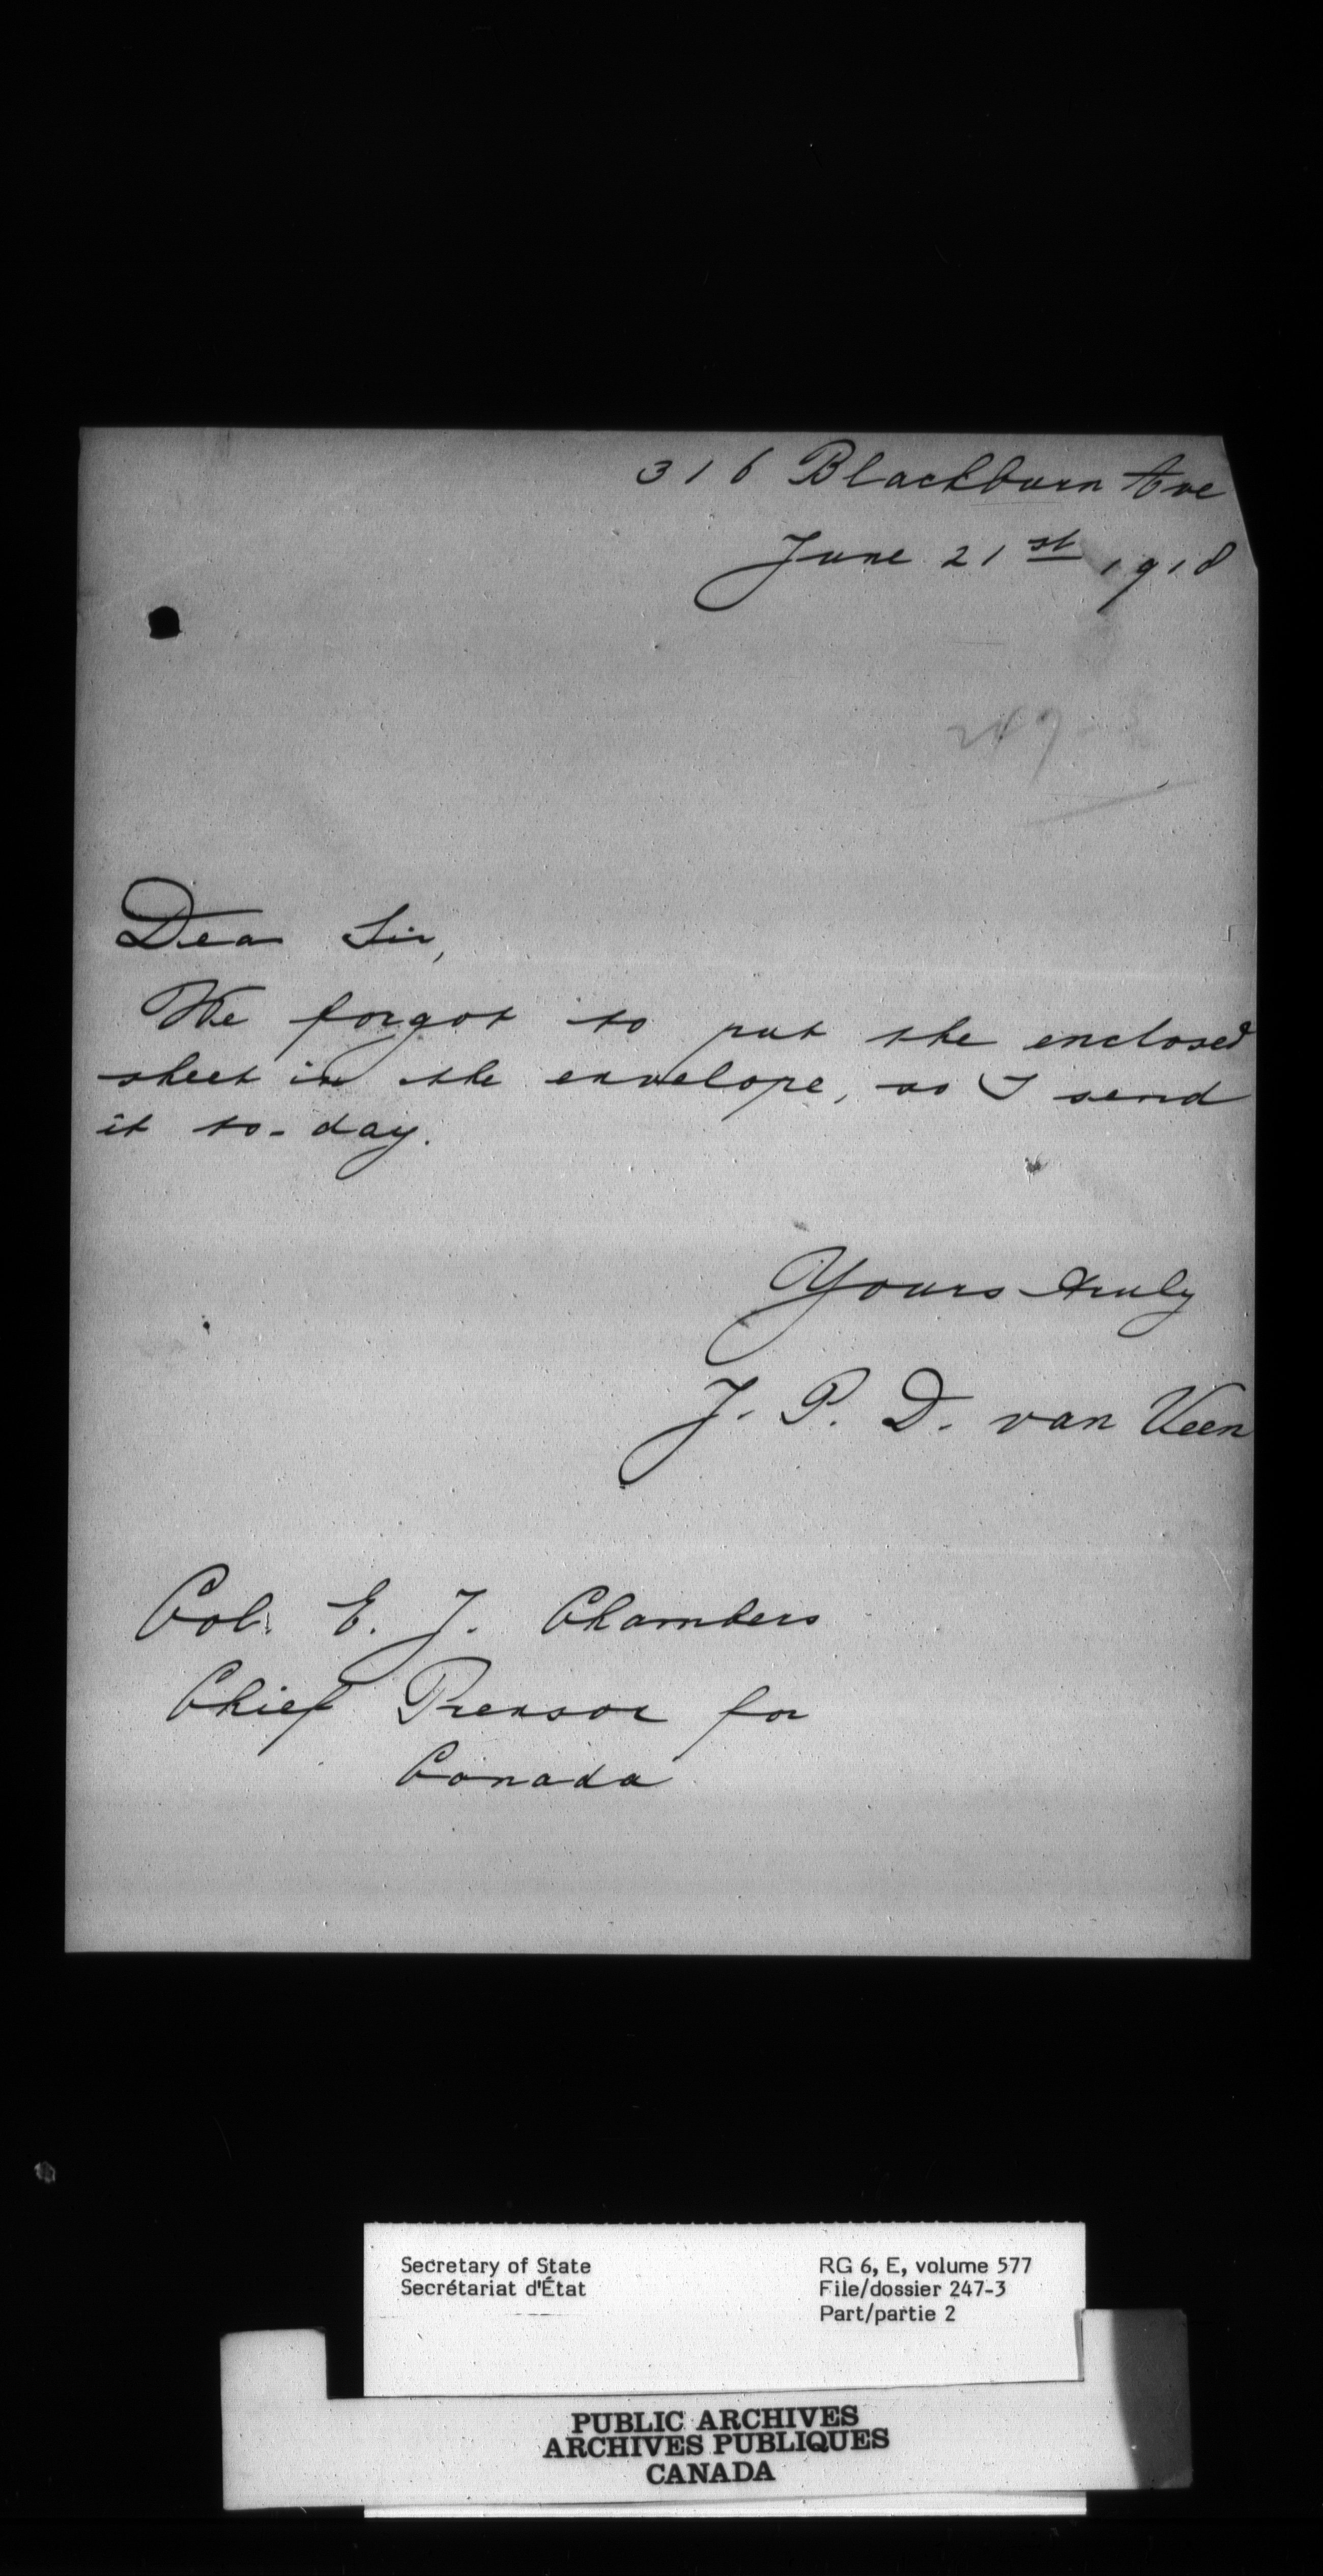 316 Blackburn Ave
June 21st 1918
247-3
Dear Sir,
We forgot to put the enclosed
sheet in the envelope, so I send
it to-day.
Yours truly
J. P. D. van Veen
Col. E. J. Chambers
Chief Prensor for
Canada
Secretary of State
Secrétariat d'État
RG 6, E, volume 577
File/dossier 247-3
Part/partie 2
PUBLIC ARCHIVES
ARCHIVES PUBLIQUES
CANADA